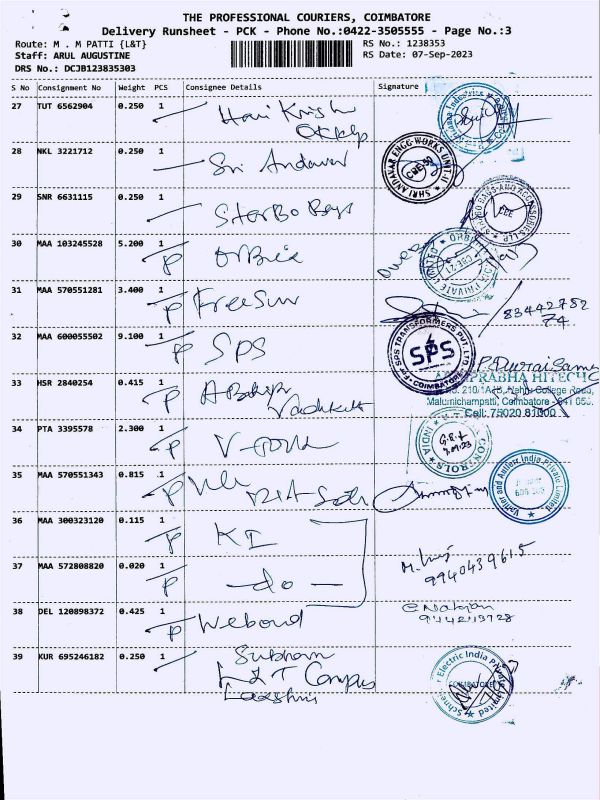 THE PROFESSIONAL COURIERS, COIMBATORE
Delivery Runsheet - PCK - Phone No.:0422-3505555 - Page No.:3
Route: M . M PATTI {L&T}
RS No.: 1238353
Staff: ARUL AUGUSTINE
RS Date: 07-Sep-2023
DRS No.: DCJB123835303
S No Consignment No Weight PCS Consignee Details Signature
27 TUT 6562904 0.250 1 Hari Krish
28 NKL 3221712 0.250 1 Sri Andavar
SHRI ANDAVAR ENGG WORKS UNIT-II
29 SNR 6631115 0.250 1 StarBo Bags
BAGS AND ACCESSORIES LLP
30 MAA 103245528 5.200 1 P
PRIVATE LIMITED
31 MAA 570551281 3.400 1 P FreeSun
83442752
74
32 MAA 600055502 9.100 1 P SPS
SPS TRANSFORMERS PVT. LTD.
SPS
COIMBATORE
P. Durai Samy
PRABHA HITECH
33 HSR 2840254 0.415 1 P
No. 210/1A4B, Nehru College Road,
Malumichampatti, Coimbatore - 641 050.
Cell: 75020 81000
34 PTA 3395578 2.300 1 P
CONTROLS INDIA
35 MAA 570551343 0.815 1 P
Vahler and Antlerr India Private Limited
36 MAA 300323120 0.115 1 P KI
37 MAA 572808820 0.020 1 P - do -
9940439615
38 DEL 120898372 0.425 1 P Webond
39 KUR 695246182 0.250 1 Subham
L & T Campus
Laxshmi
Schneider Electric India Private Limited
COIMBATORE